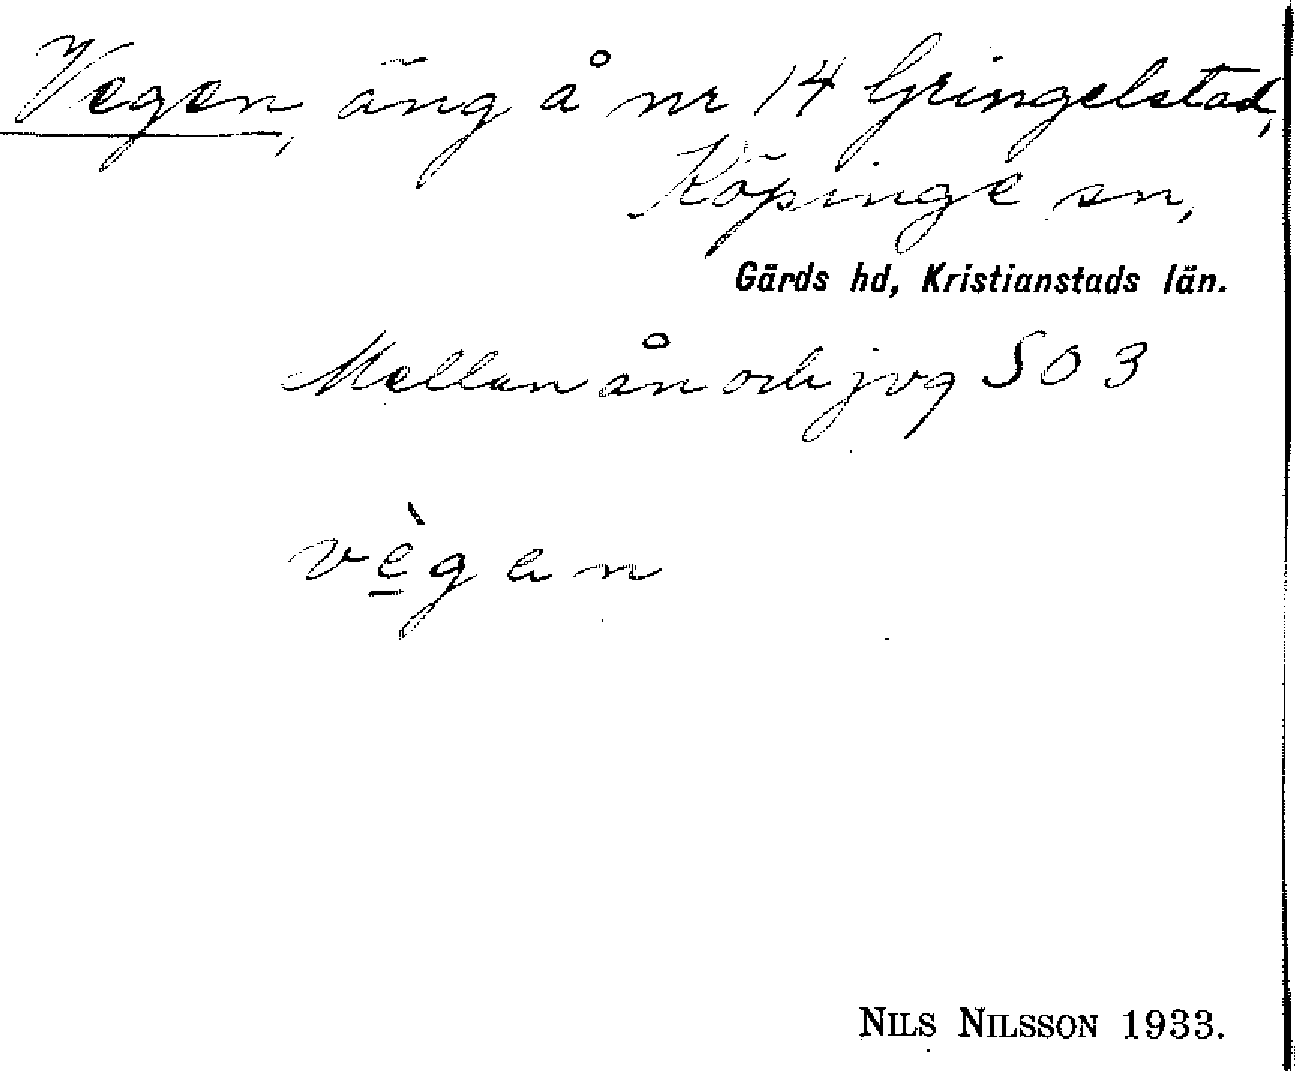 Vegen, äng å nr 14 Gringelstad,
Köpinge sn,
Gärds hd, Kristianstads län.
Mellan ån och jvg SO 3
vè̠gan
NILS NILSSON 1933.